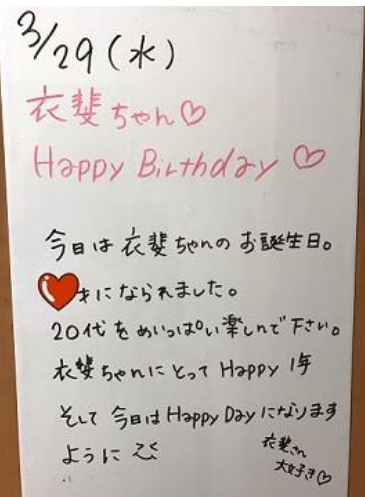 3/29(水)
衣斐ちゃん♡
Happy Birthday ♡
今日は衣斐ちゃんのお誕生日。
才になられました。
20代をめいっぱい楽しんで下さい。
衣斐ちゃんにとってHappy 1年
そして今日はHappy Dayになります
ように
衣斐さん
大好き♡